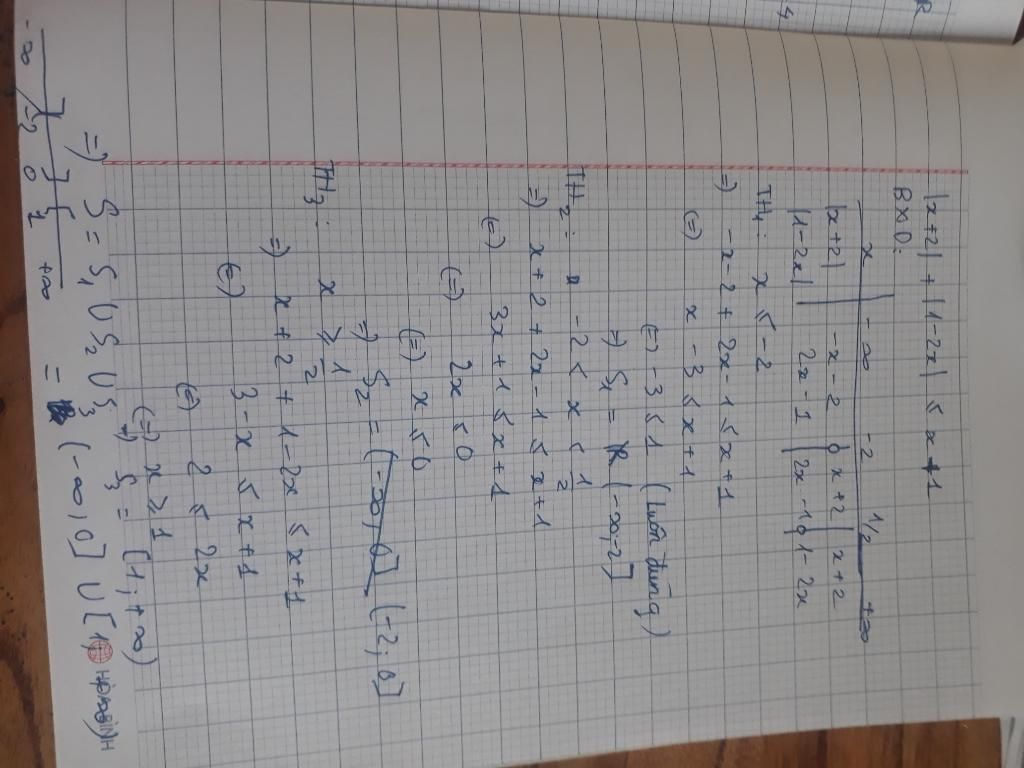 |x+2| + |1-2x| ≤ x+1
BXD:
x -∞ -2 1/2 +∞
|x+2| -x-2 0 x+2 | x+2
|1-2x| 2x-1 | 2x-1 0 1-2x
TH1: x ≤ -2
=) -x-2 + 2x-1 ≤ x+1
(=) x-3 ≤ x+1
(=) -3 ≤ 1 (luôn đúng)
=) S1 = (-∞,-2]
TH2: -2 < x < 1/2
=) x+2 + 2x-1 ≤ x+1
(=) 3x+1 ≤ x+1
(=) 2x ≤ 0
(=) x ≤ 0
=) S2 = (-2; 0]
TH3: x ≥ 1/2
=) x+2 + 1-2x ≤ x+1
(=) 3-x ≤ x+1
(=) 2 ≤ 2x
(=) x ≥ 1
=) S3 = [1; +∞)
=) S = S1 U S2 U S3 = (-∞,0] U [1,
-∞ -2 0 1 +∞
HOIDAP247